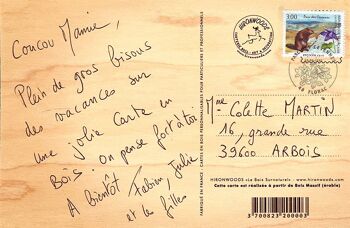 Coucou Mamie,
Plein de gros bisous
des vacances sur
une jolie carte en
BOIS. on pense fort à toi
A bientôt Fabien, Julie
et les filles
FABRIQUÉ EN FRANCE - CARTES EN BOIS PERSONNALISABLES POUR PARTICULIERS ET PROFESSIONNELS
HIRONWOODS
3,00
Parc des Cévennes
48 FLORAC
Mme Colette MARTIN
16, grande rue
39600 ARBOIS
HIRONWOODS «Le Bois Surnaturel» www.hironwoods.com
Cette carte est réalisée à partir de Bois Massif (érable)
3 700823 200003